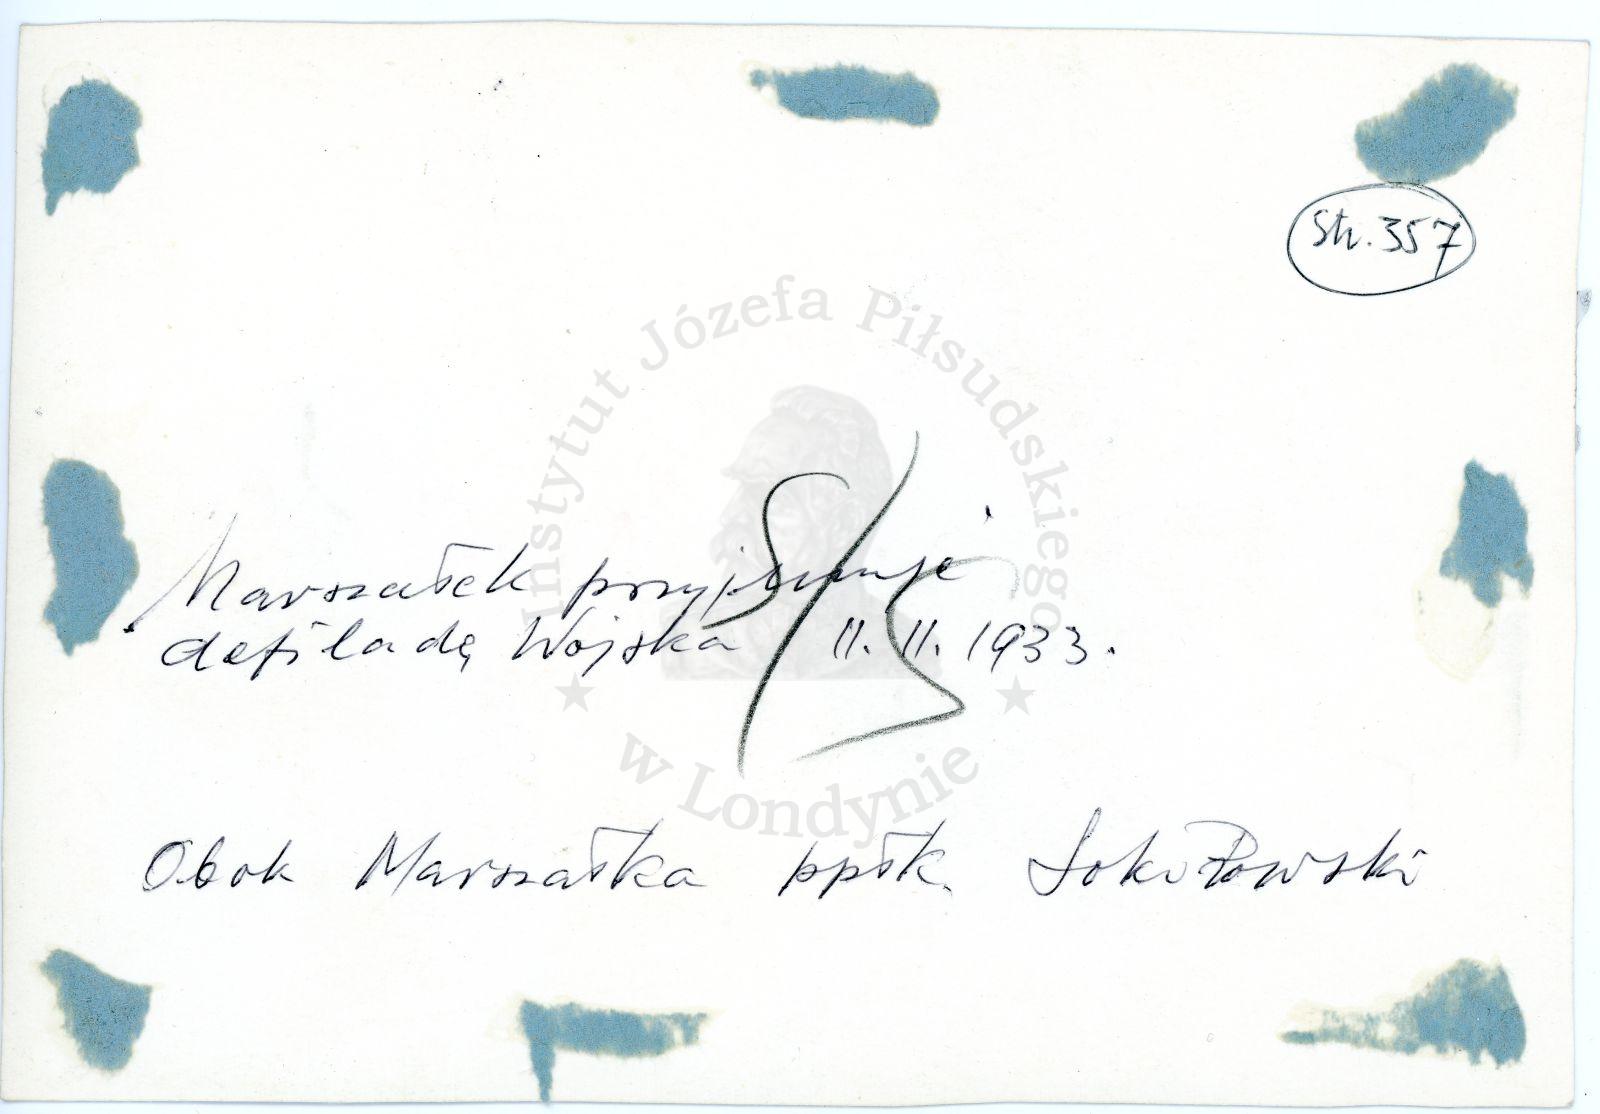 Str. 357
Instytut Józefa Piłsudskiego
Marszałek przyjmuje
defiladę Wojska 11. 11. 1933.
w Londynie
Obok Marszałka ppłk. Sokołowski